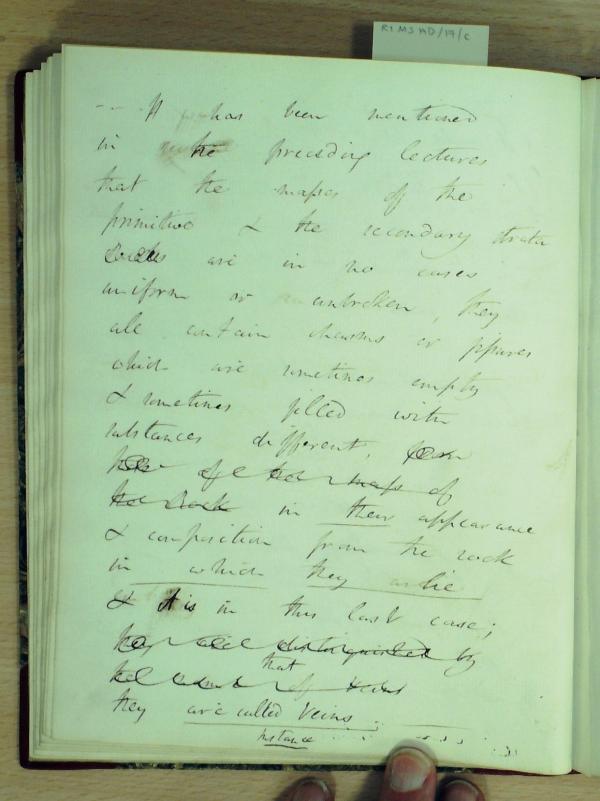 RI MS HD/17/c
-- It has been mentioned
in the preceding lectures
that the masses of the
primitive & the secondary strata
rocks are in no cases
uniform or unbroken, they
all contain chasms or fissures
which are sometimes empty
& sometimes filled with
substances different, from
the of the mass of
the Rock in their appearance
& composition from the rock
in which they lie
& it is in this last case;
they are distinguished by
that
the name of veins
they are called Veins
Instance